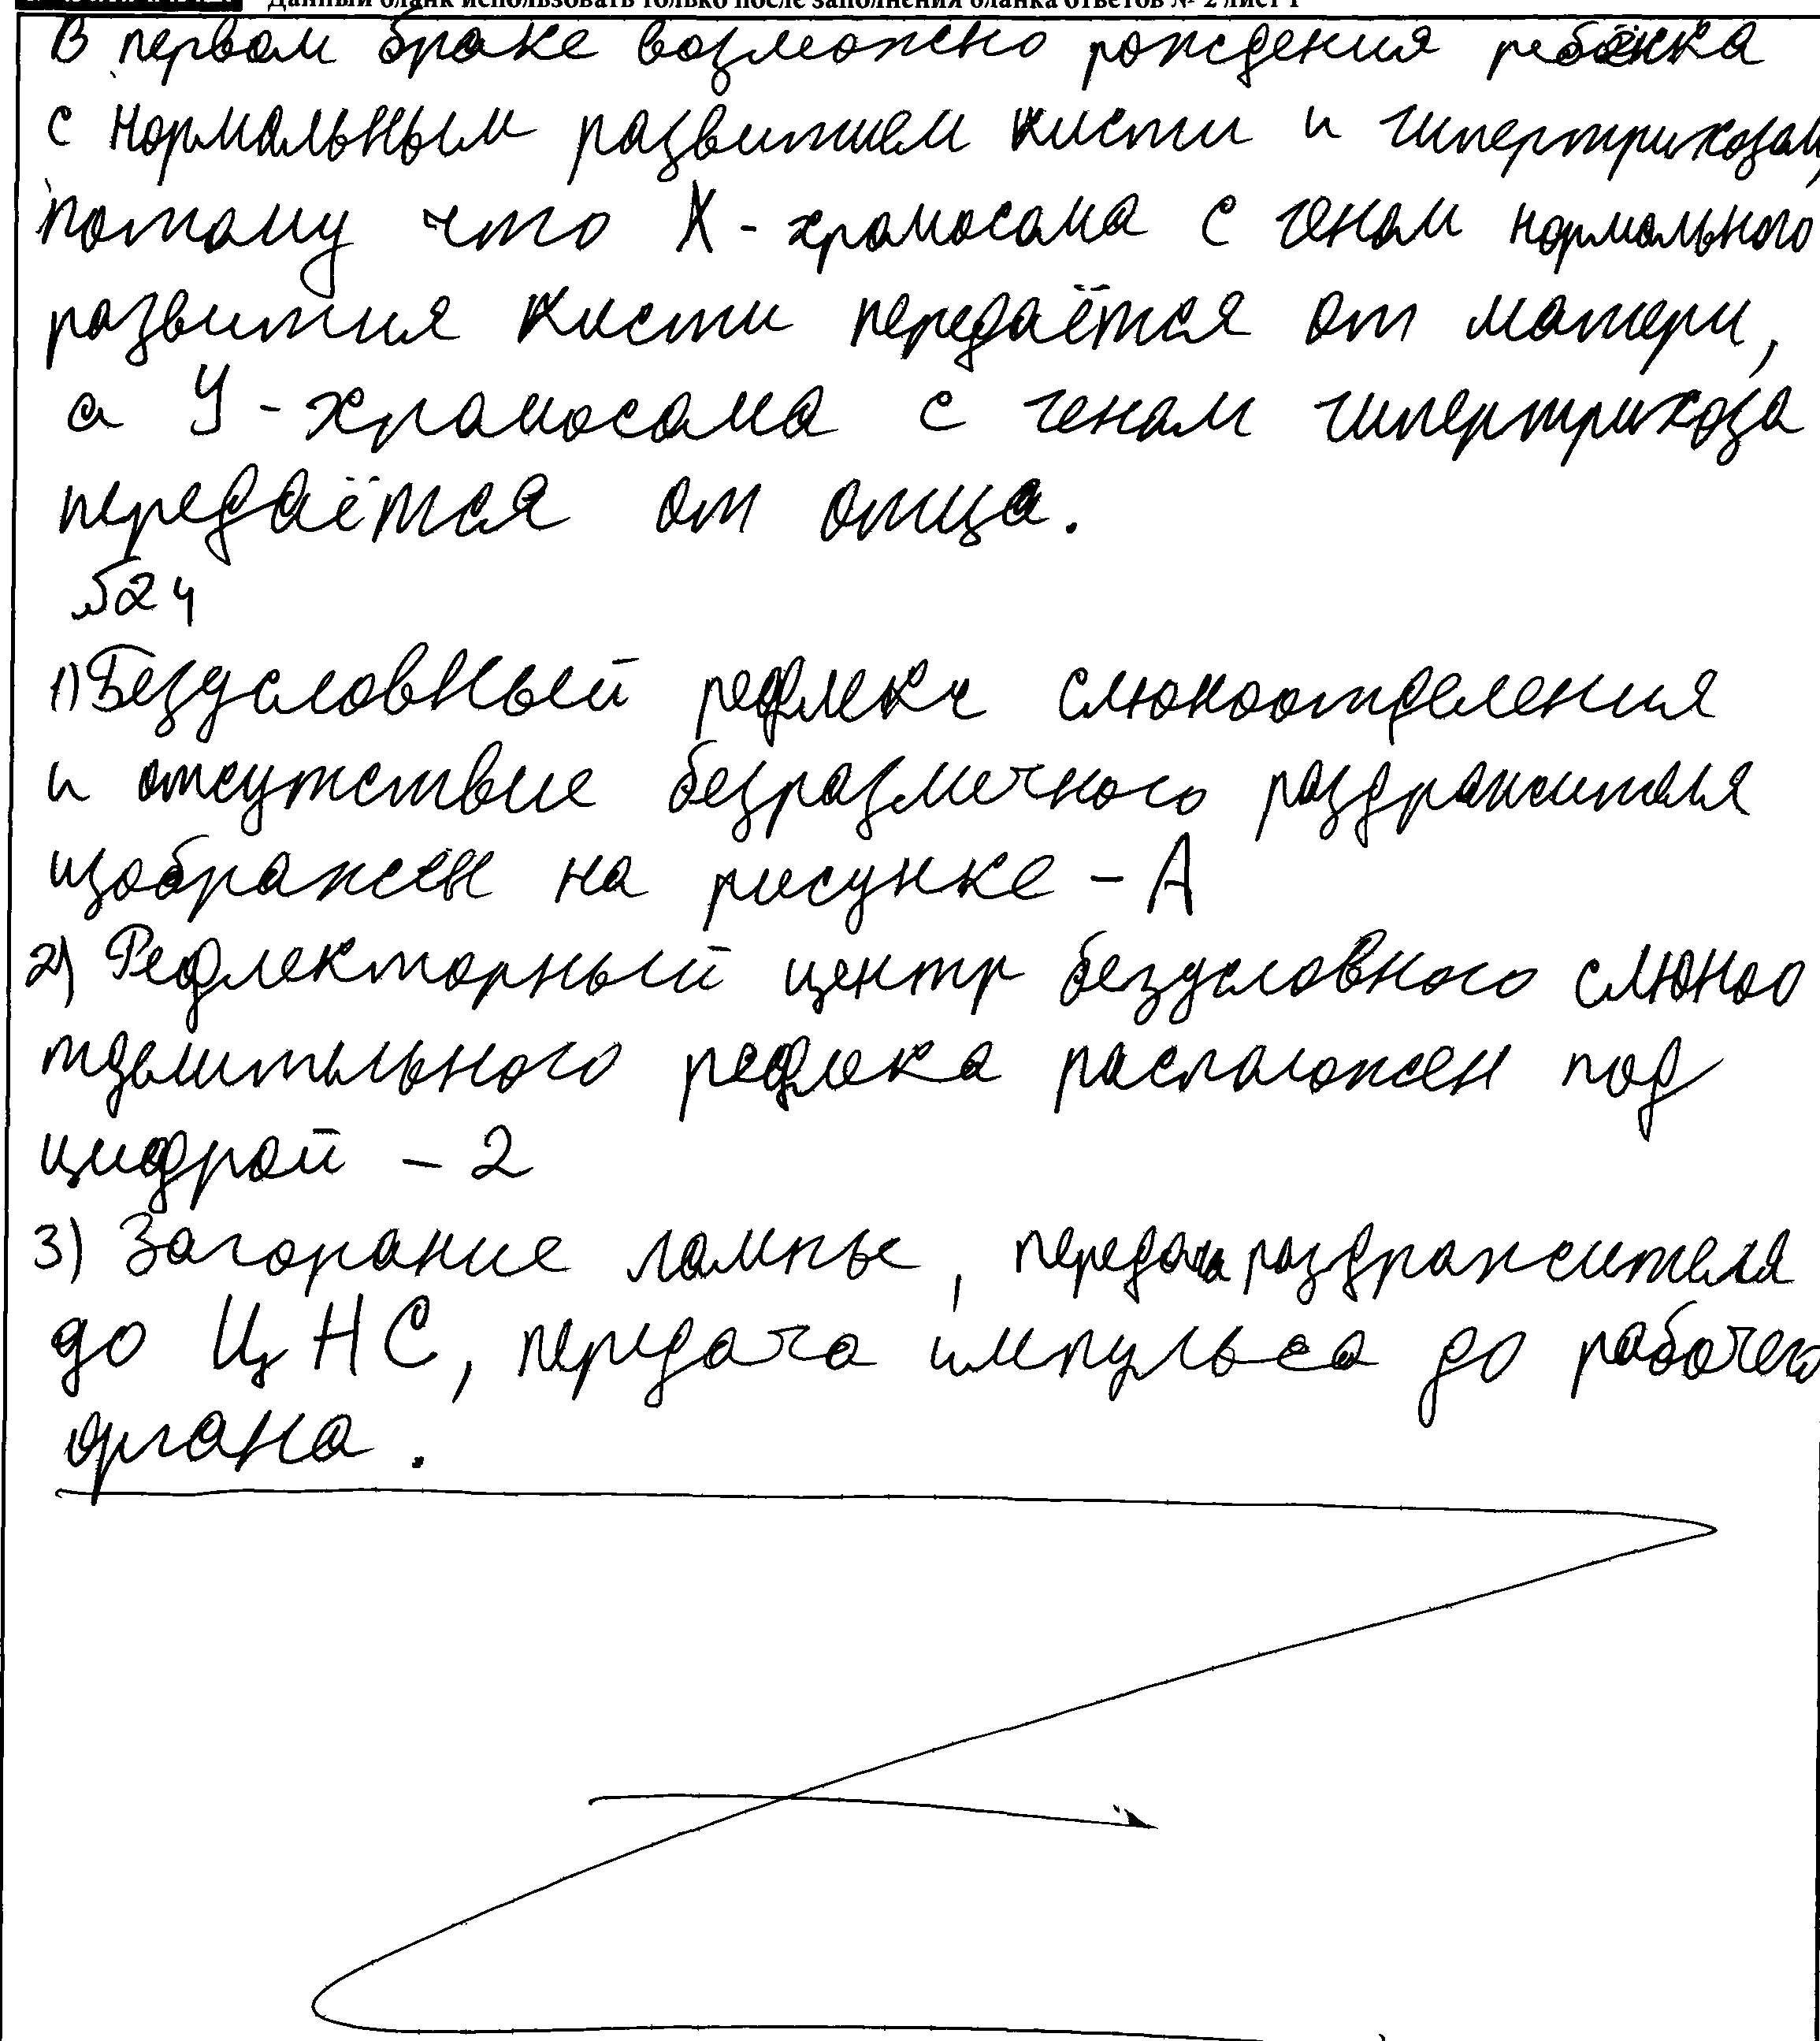 Данный бланк использовать только после заполнения бланка ответов № 2 лист 1
В первом браке возможно рождения ребёнка
с нормальным развитием кисти и гипертрихозом,
потому что X - хромосома с геном нормального
развития кисти передаётся от матери,
а У - хромосома с геном гипертрихоза
передаётся от отца.
№24
1) Безусловный рефлекс слюноотделения
и отсутствие безразличного раздражителя
изображен на рисунке - А
2) Рефлекторный центр безусловного слюноо
тделительного рефлека расположен под
цифрой - 2
3) Загорание лампы, передача раздражителя
до ЦНС, передача импульса до рабочего
органа.